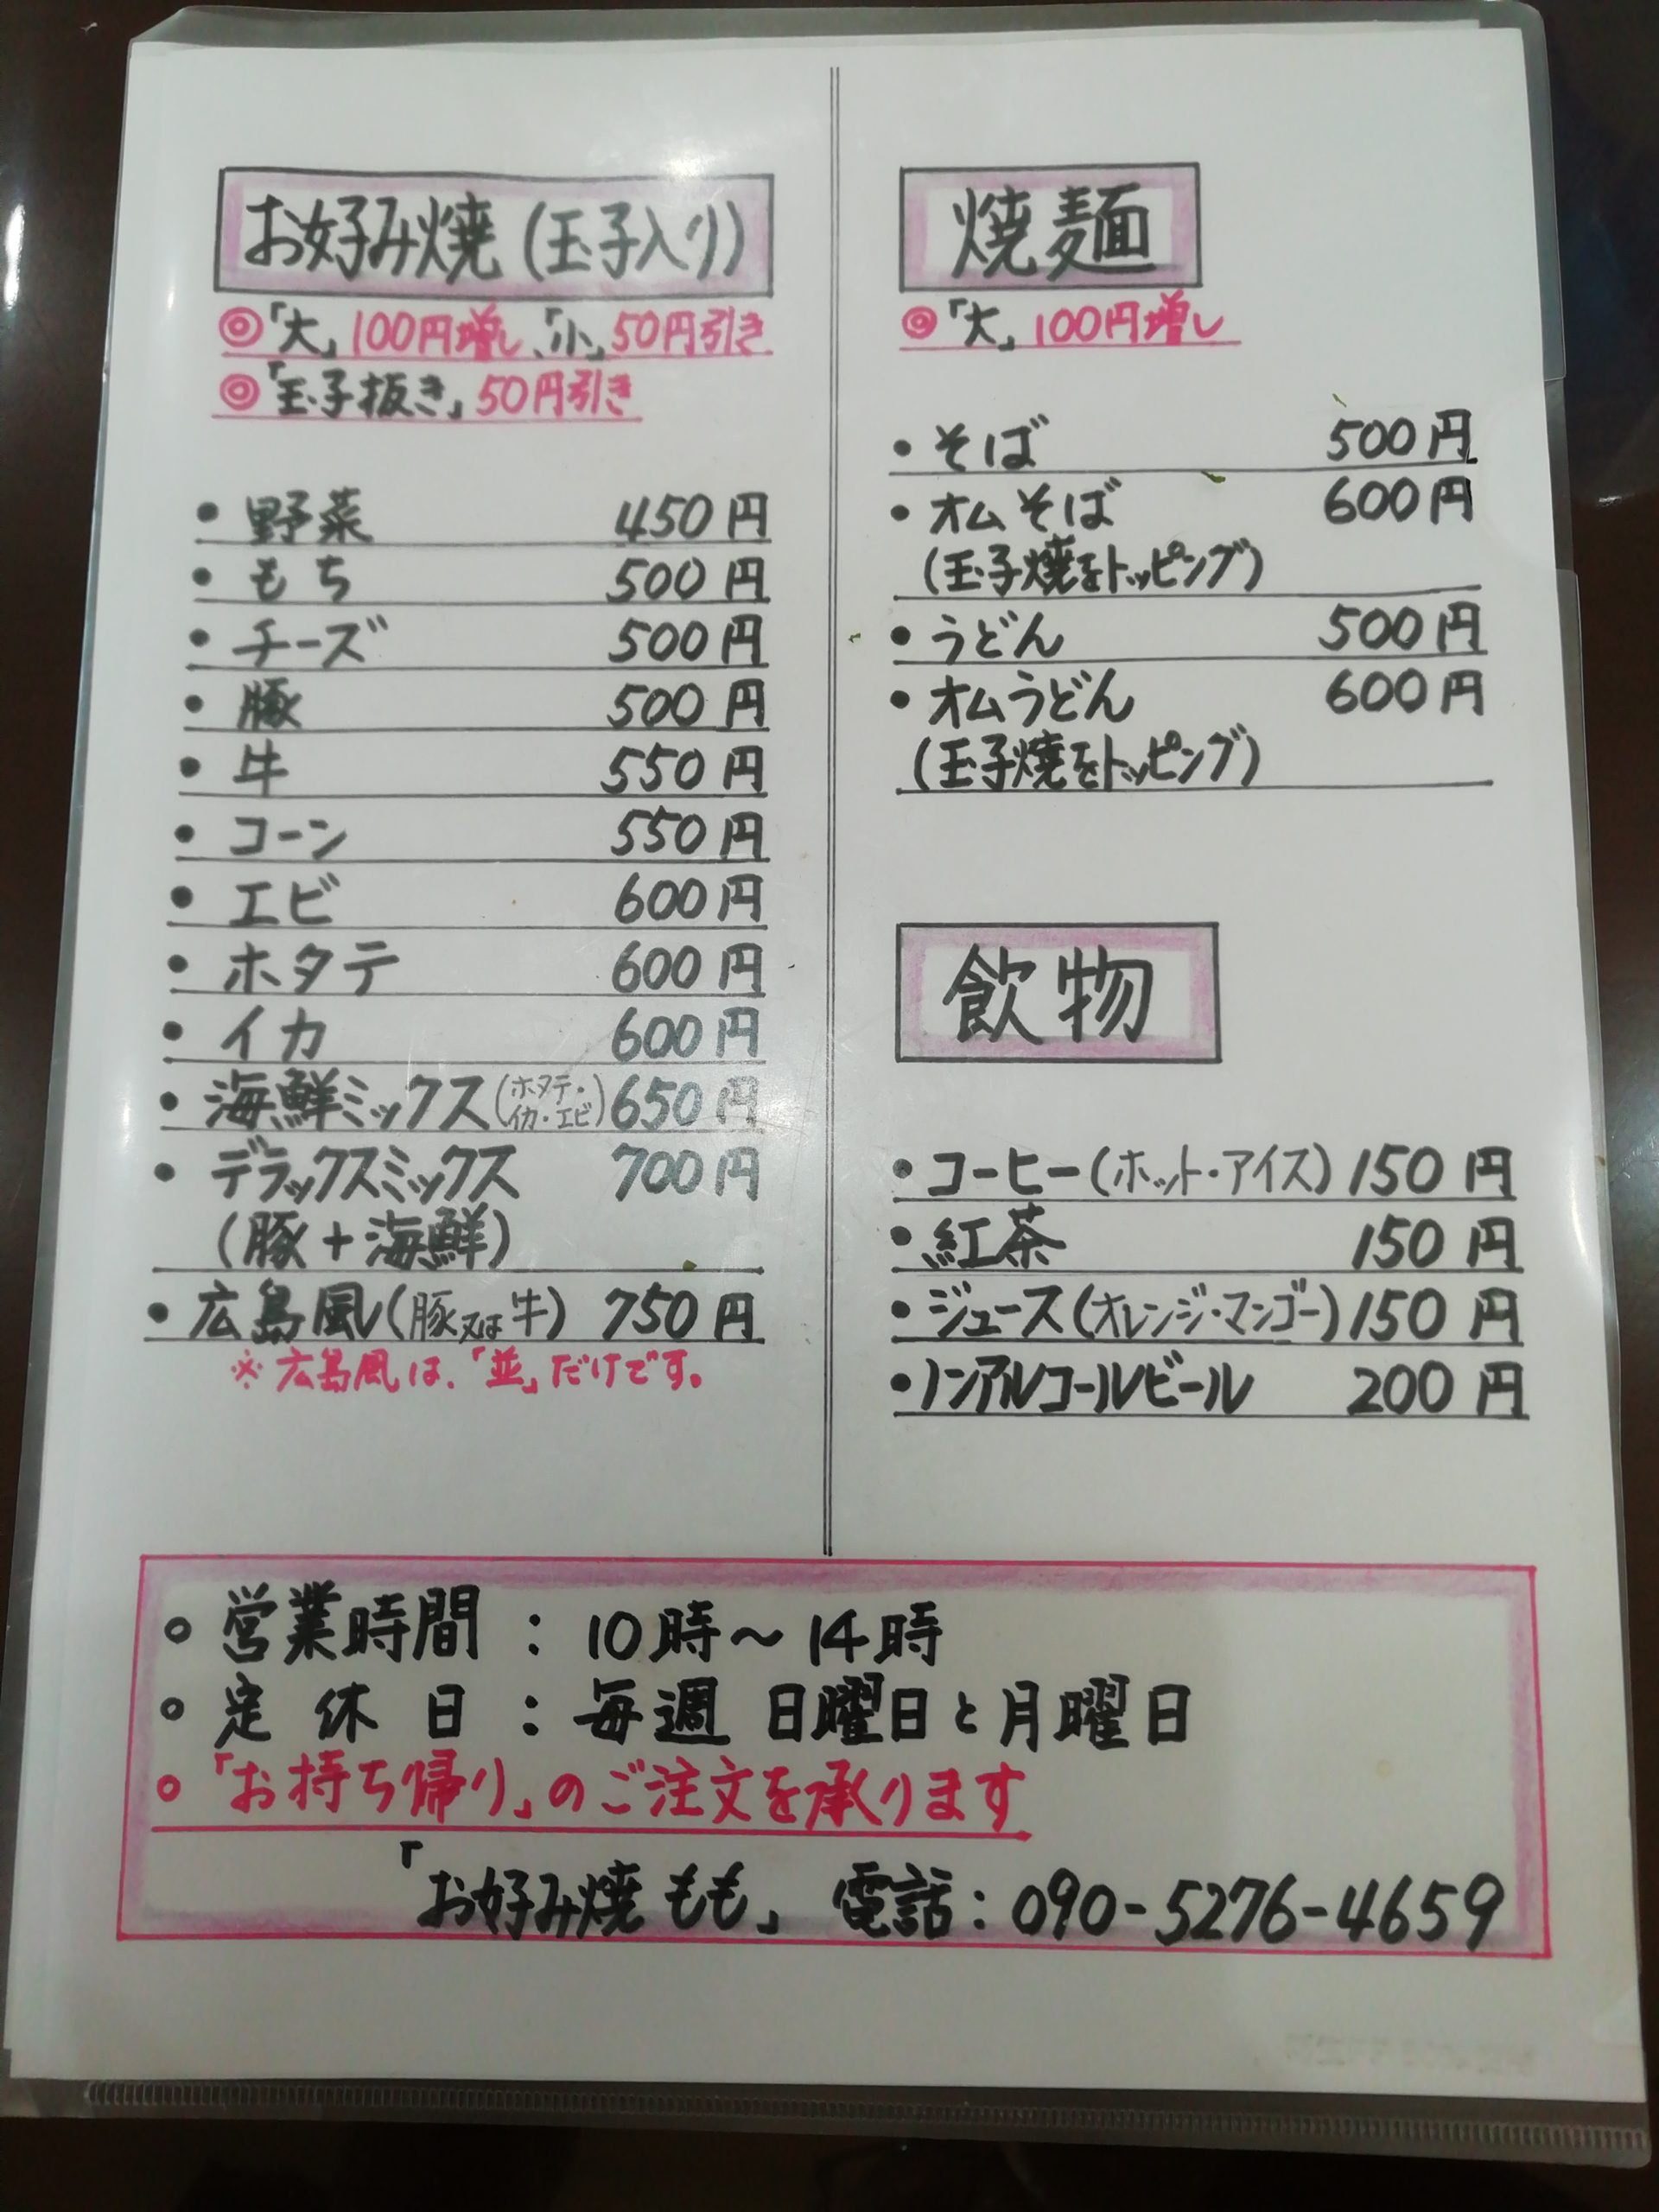 お好み焼(玉子入り)
◎「大」100円増し、「小」50円引き
◎「玉子抜き」50円引き
・野菜 450円
・もち 500円
・チーズ 500円
・豚 500円
・牛 550円
・コーン 550円
・エビ 600円
・ホタテ 600円
・イカ 600円
・海鮮ミックス(ホタテ・イカ・エビ) 650円
・デラックスミックス 700円
(豚+海鮮)
・広島風(豚又は牛) 750円
※広島風は、「並」だけです。
焼麺
◎「大」100円増し
・そば 500円
・オムそば 600円
(玉子焼をトッピング)
・うどん 500円
・オムうどん 600円
(玉子焼をトッピング)
飲物
・コーヒー(ホット・アイス) 150円
・紅茶 150円
・ジュース(オレンジ・マンゴー) 150円
・ノンアルコールビール 200円
○営業時間:10時〜14時
○定休日:毎週 日曜日と月曜日
○「お持ち帰り」のご注文を承ります
「お好み焼 もも」 電話:090-5276-4659